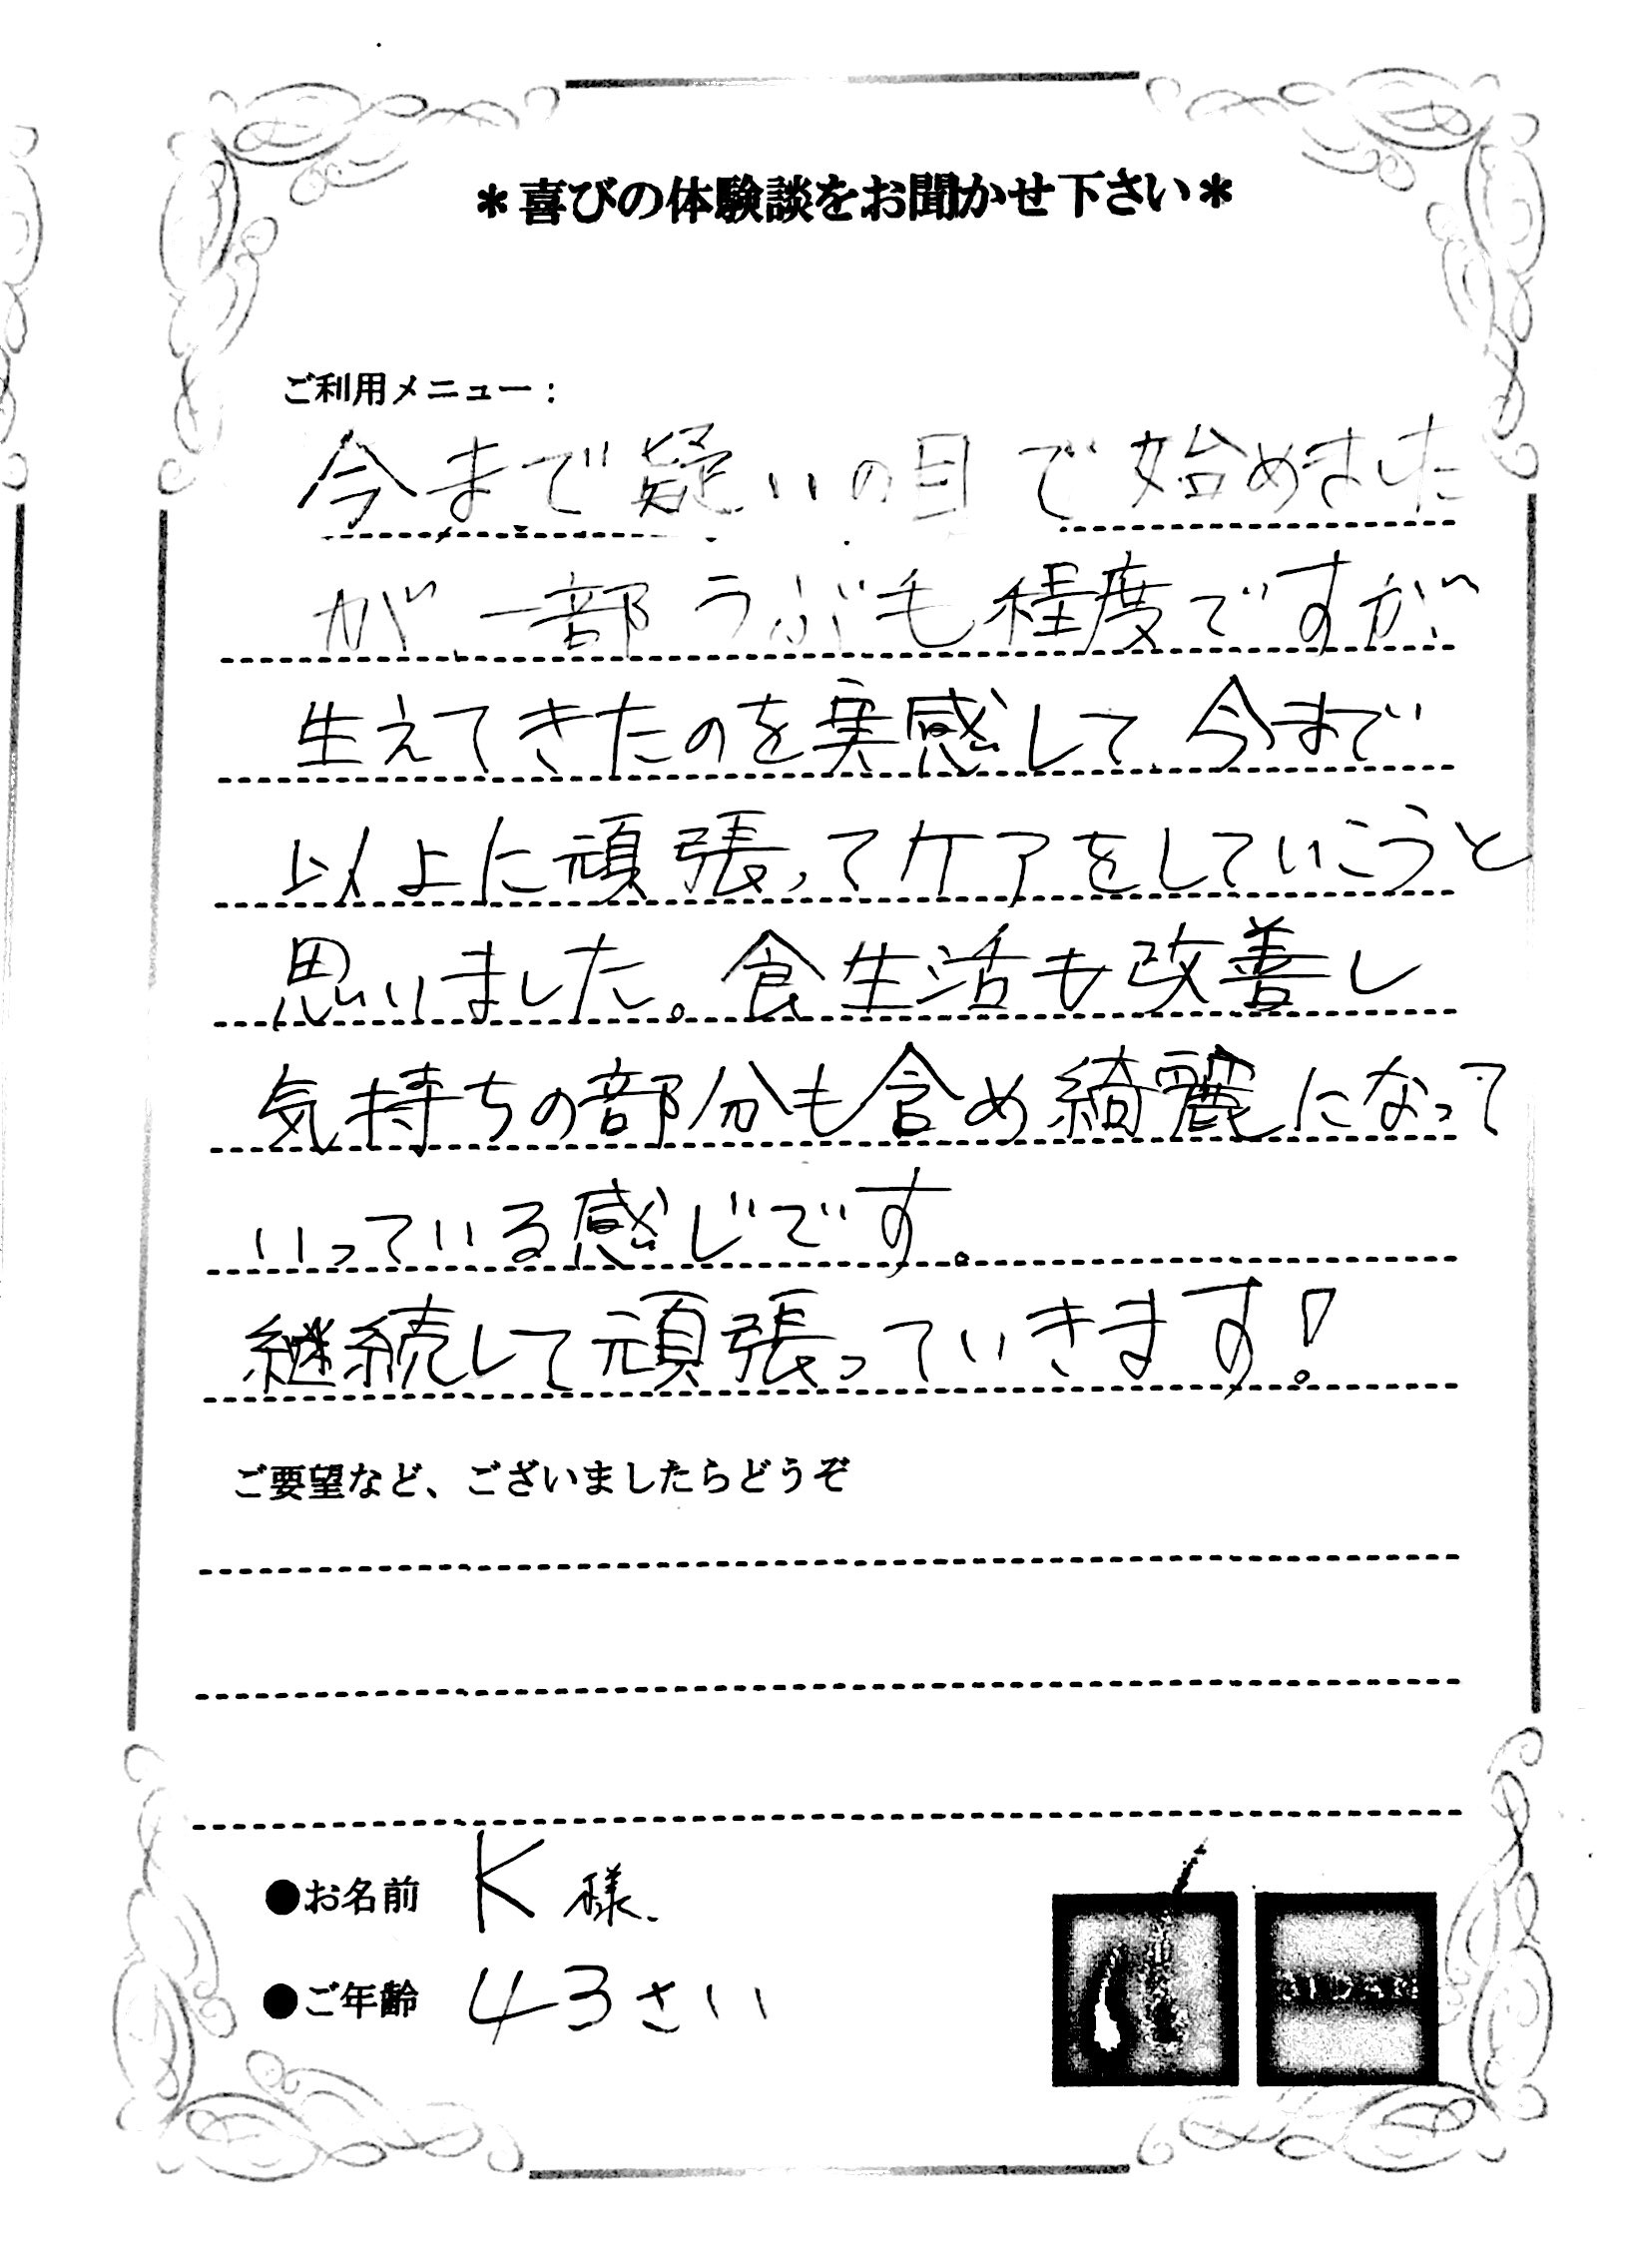 ＊喜びの体験談をお聞かせ下さい＊
ご利用メニュー：
今まで疑いの目で始めました
が、一部うぶ毛程度ですが、
生えてきたのを実感して、今まで
以上に頑張ってケアをしていこうと
思いました。食生活も改善し
気持ちの部分も含め綺麗になって
いっている感じです。
継続して頑張っていきます！
ご要望など、ございましたらどうぞ
●お名前 K様.
●ご年齢 43さい